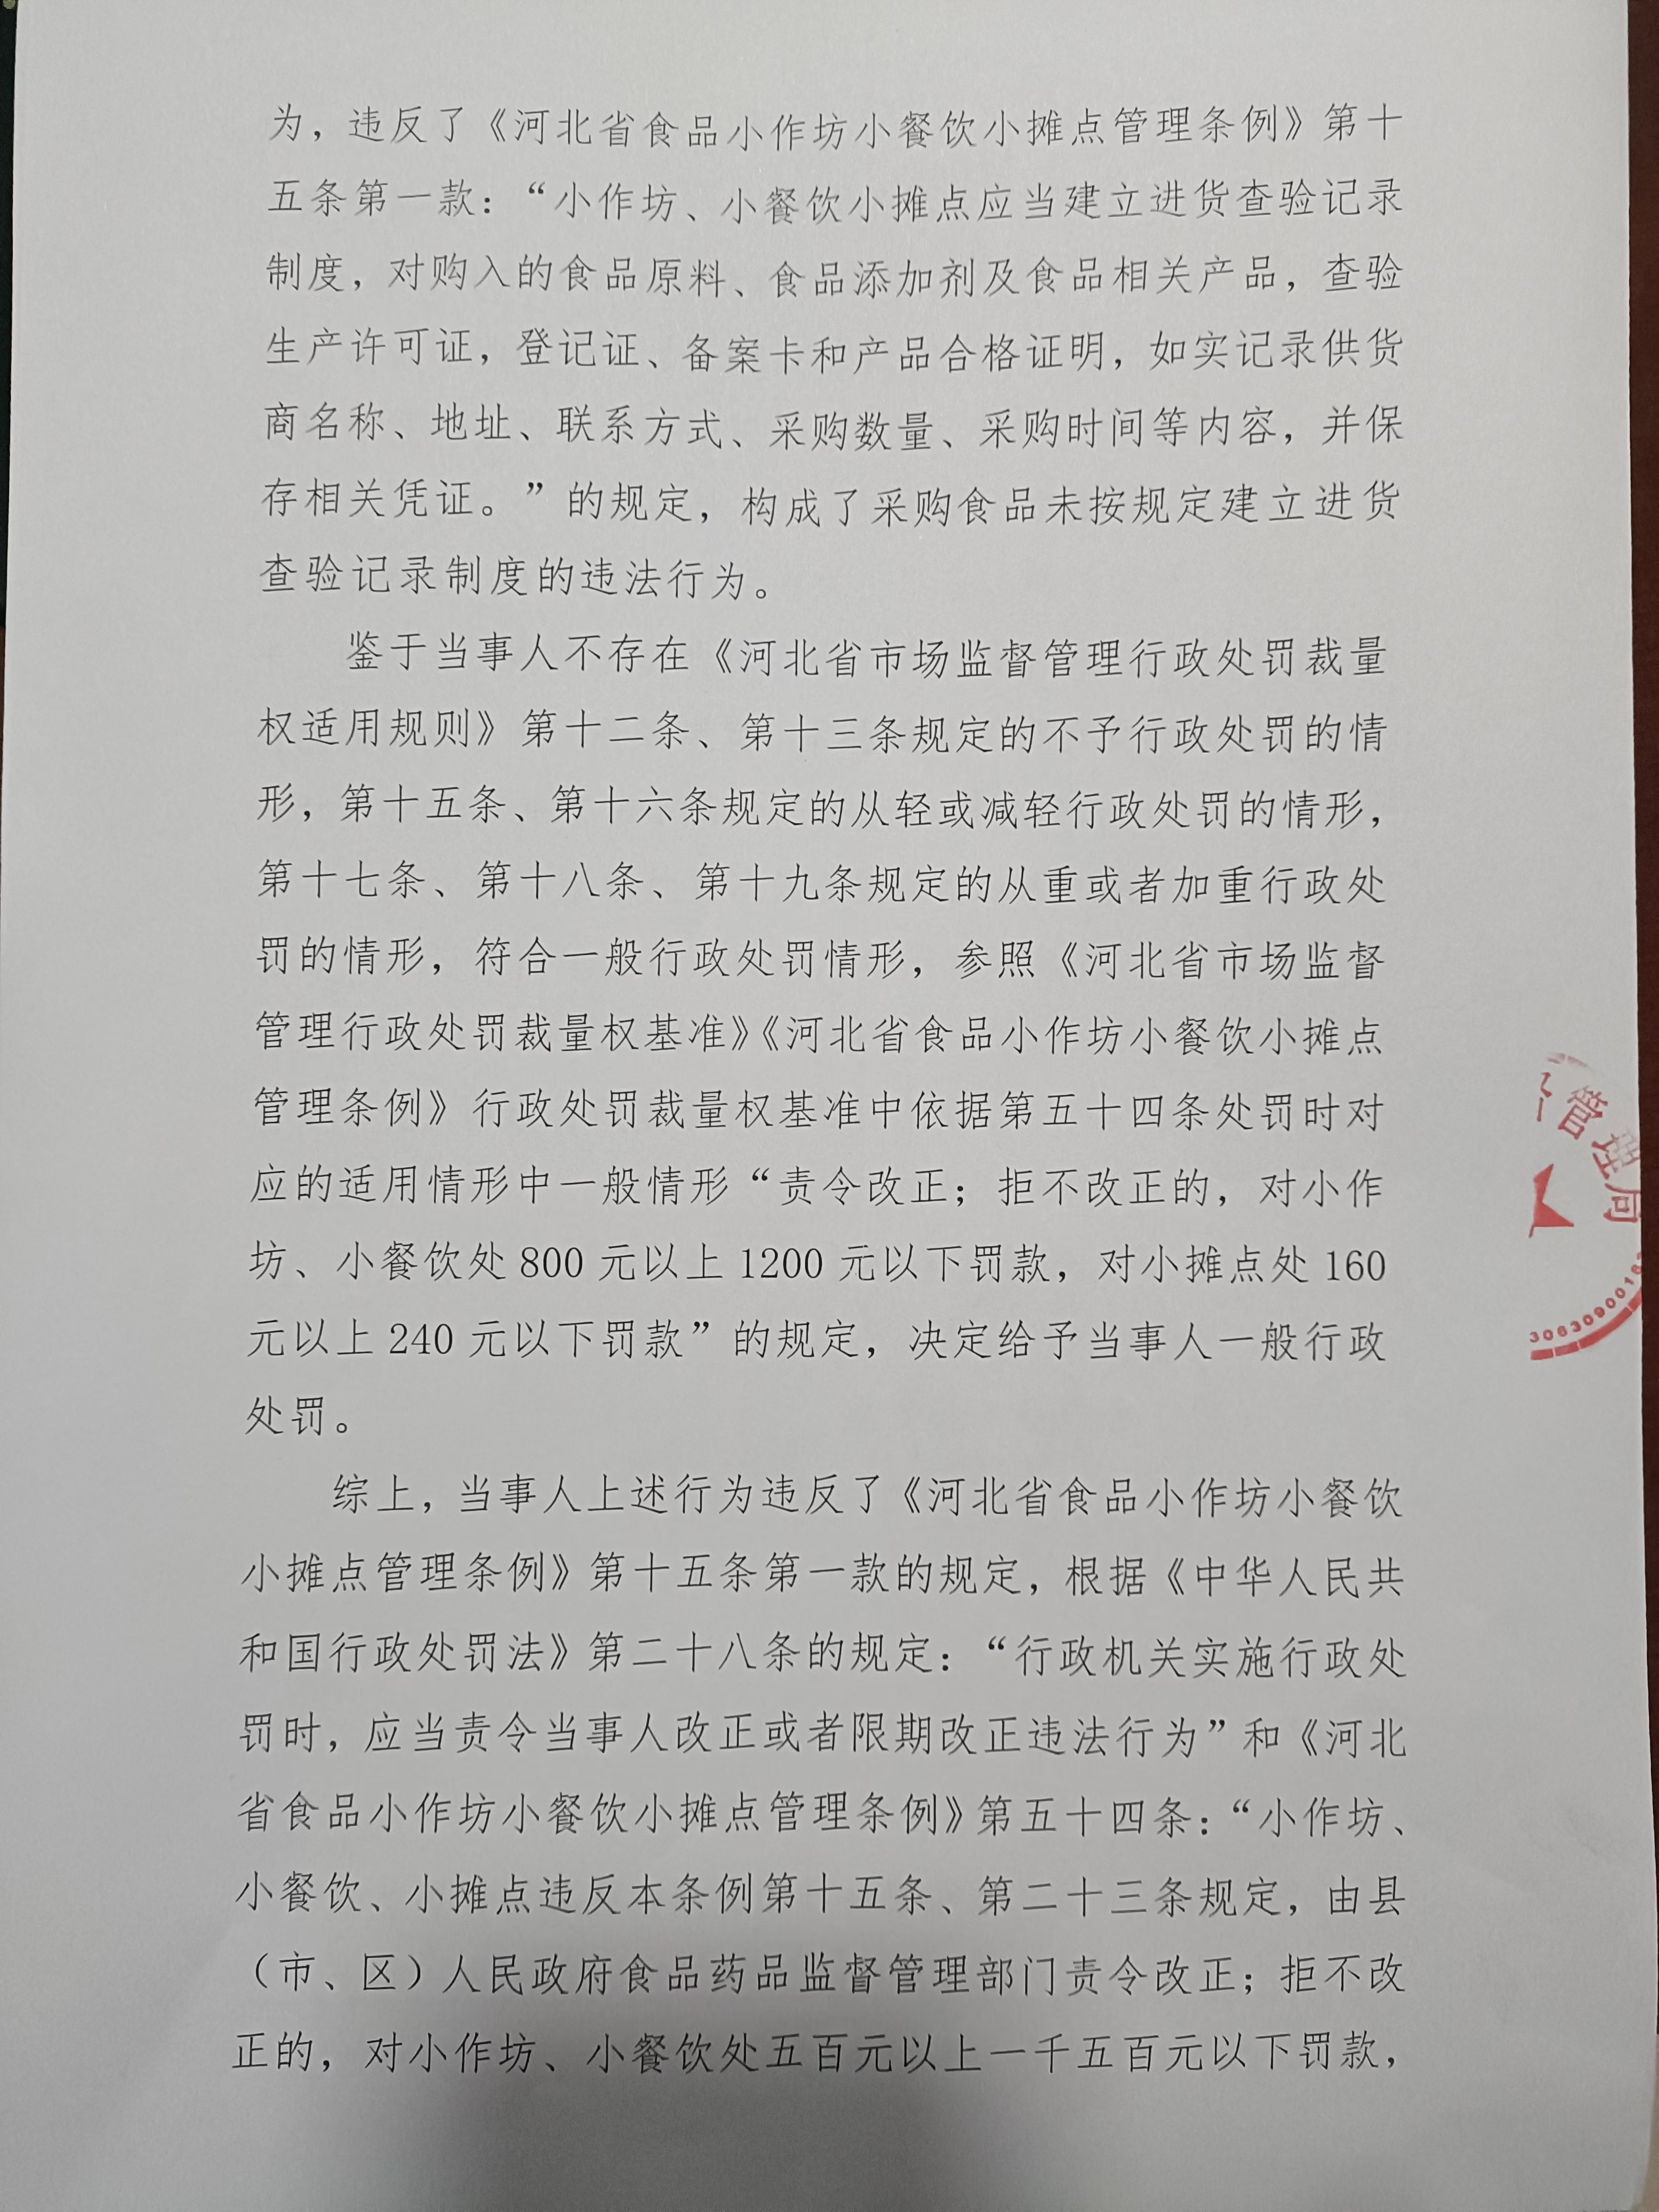 为，违反了《河北省食品小作坊小餐饮小摊点管理条例》第十
五条第一款：“小作坊、小餐饮小摊点应当建立进货查验记录
制度，对购入的食品原料、食品添加剂及食品相关产品，查验
生产许可证，登记证、备案卡和产品合格证明，如实记录供货
商名称、地址、联系方式、采购数量、采购时间等内容，并保
存相关凭证。”的规定，构成了采购食品未按规定建立进货
查验记录制度的违法行为。
鉴于当事人不存在《河北省市场监督管理行政处罚裁量
权适用规则》第十二条、第十三条规定的不予行政处罚的情
形，第十五条、第十六条规定的从轻或减轻行政处罚的情形，
第十七条、第十八条、第十九条规定的从重或者加重行政处
罚的情形，符合一般行政处罚情形，参照《河北省市场监督
管理行政处罚裁量权基准》《河北省食品小作坊小餐饮小摊点
管理条例》行政处罚裁量权基准中依据第五十四条处罚时对
应的适用情形中一般情形“责令改正；拒不改正的，对小作
坊、小餐饮处 800 元以上 1200 元以下罚款，对小摊点处 160
元以上 240 元以下罚款”的规定，决定给予当事人一般行政
处罚。
综上，当事人上述行为违反了《河北省食品小作坊小餐饮
小摊点管理条例》第十五条第一款的规定，根据《中华人民共
和国行政处罚法》第二十八条的规定：“行政机关实施行政处
罚时，应当责令当事人改正或者限期改正违法行为”和《河北
省食品小作坊小餐饮小摊点管理条例》第五十四条：“小作坊、
小餐饮、小摊点违反本条例第十五条、第二十三条规定，由县
（市、区）人民政府食品药品监督管理部门责令改正；拒不改
正的，对小作坊、小餐饮处五百元以上一千五百元以下罚款，
管理局
3063090016